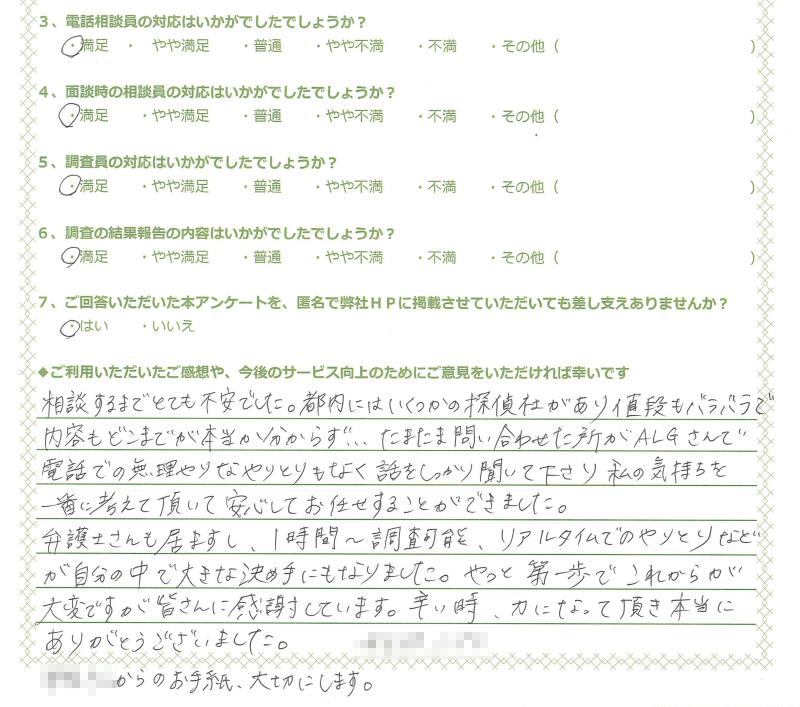 3、電話相談員の対応はいかがでしたでしょうか？
・満足 ・ やや満足 ・普通 ・やや不満 ・不満 ・その他（ ）
4、面談時の相談員の対応はいかがでしたでしょうか？
・満足 ・やや満足 ・普通 ・やや不満 ・不満 ・その他（ ）
5、調査員の対応はいかがでしたでしょうか？
・満足 ・やや満足 ・普通 ・やや不満 ・不満 ・その他（ ）
6、調査の結果報告の内容はいかがでしたでしょうか？
・満足 ・やや満足 ・普通 ・やや不満 ・不満 ・その他（ ）
7、ご回答いただいた本アンケートを、匿名で弊社ＨＰに掲載させていただいても差し支えありませんか？
・はい ・いいえ
◆ご利用いただいたご感想や、今後のサービス向上のためにご意見をいただければ幸いです
相談するまでとても不安でした。都内にはいくつかの探偵社があり値段もバラバラで
内容もどこまでが本当か分からず… たまたま問い合わせた所がALGさんで
電話での無理やりなやりとりもなく話をしっかり聞いて下さり私の気持ちを
一番に考えて頂いて安心してお任せすることができました。
弁護士さんも居ますし、1時間～調査可能、リアルタイムでのやりとりなど
が自分の中で大きな決め手にもなりました。やっと第一歩でこれからが
大変ですが皆さんに感謝しています。辛い時、力になって頂き本当に
ありがとうございました。
からのお手紙、大切にします。